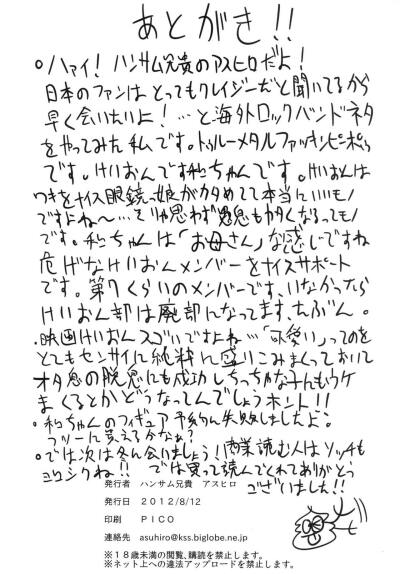 あとがき!!
○ハァイ! ハンサム兄貴のアスヒロだよ!
日本のファンはとってもクレイジーだと聞いてるから
早く会いたいよ! …と海外ロックバンドネタ
をやってみた私です。トゥルーメタルファッキンピーポゥ
です。けいおんです和ちゃんです。けいおんは
ワキをナイス眼鏡っ娘がカタめてて本当にいいモノ
ですよね〜…そりゃ思わず息もカタくなるってモノ
です。和ちゃんは「お母さん」な感じですね
危げなけいおんメンバーをナイスサポート
です。第7くらいのメンバーです、いなかったら
けいおん部は廃部になってます、たぶん。
・映画けいおんスゴいですよね…「可愛い」ってのを
とてもセンサイに純粋に盛りこみまくっておいて
オタ息の脱息にも成功しちっちゃな子にもウケ
まくるとかどうなってんでしょうホント!!
○和ちゃんのフィギュア予約ん失敗しましたよ。
フツーに買えるかなぁ?
○では次は冬ん会いましょう! 商業読む人はソッチも
ヨロシクね!! では買って読んでくれてありがとう
ございました!!
発行者 ハンサム兄貴 アスヒロ
発行日 2012/8/12
印刷 PICO
連絡先 asuhiro@kss.biglobe.ne.jp
※18歳未満の閲覧、購読を禁止します。
※ネット上への違法アップロードを禁止します。